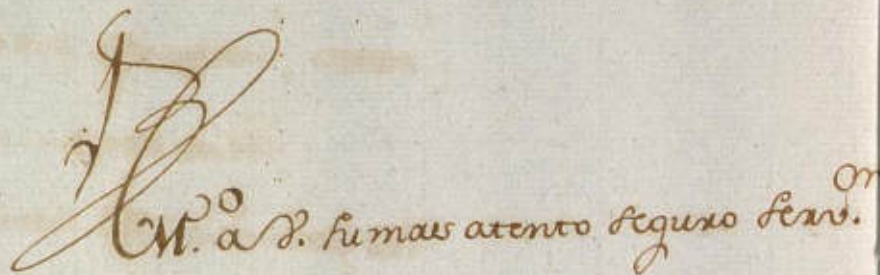 BLM.º a V. su mas atento seguro serv.or